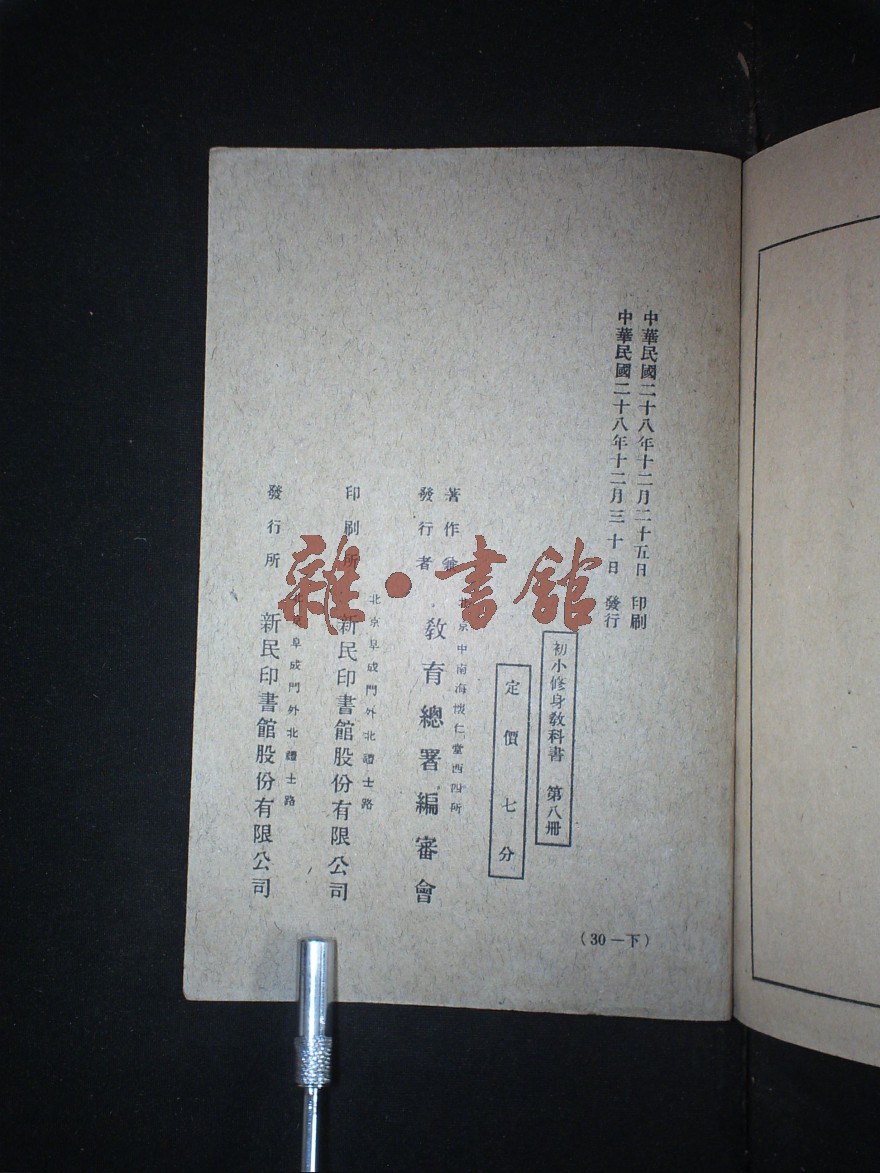 中華民國二十八年十二月二十五日 印刷
中華民國二十八年十二月三十日 發行
初小修身教科書 第八冊
定價七分
著作兼
發行者
北京中南海懷仁堂西四所
教育總署編審會
印刷所
北京阜成門外北禮士路
新民印書館股份有限公司
發行所
北京阜成門外北禮士路
新民印書館股份有限公司
(30一下)
雜·書館